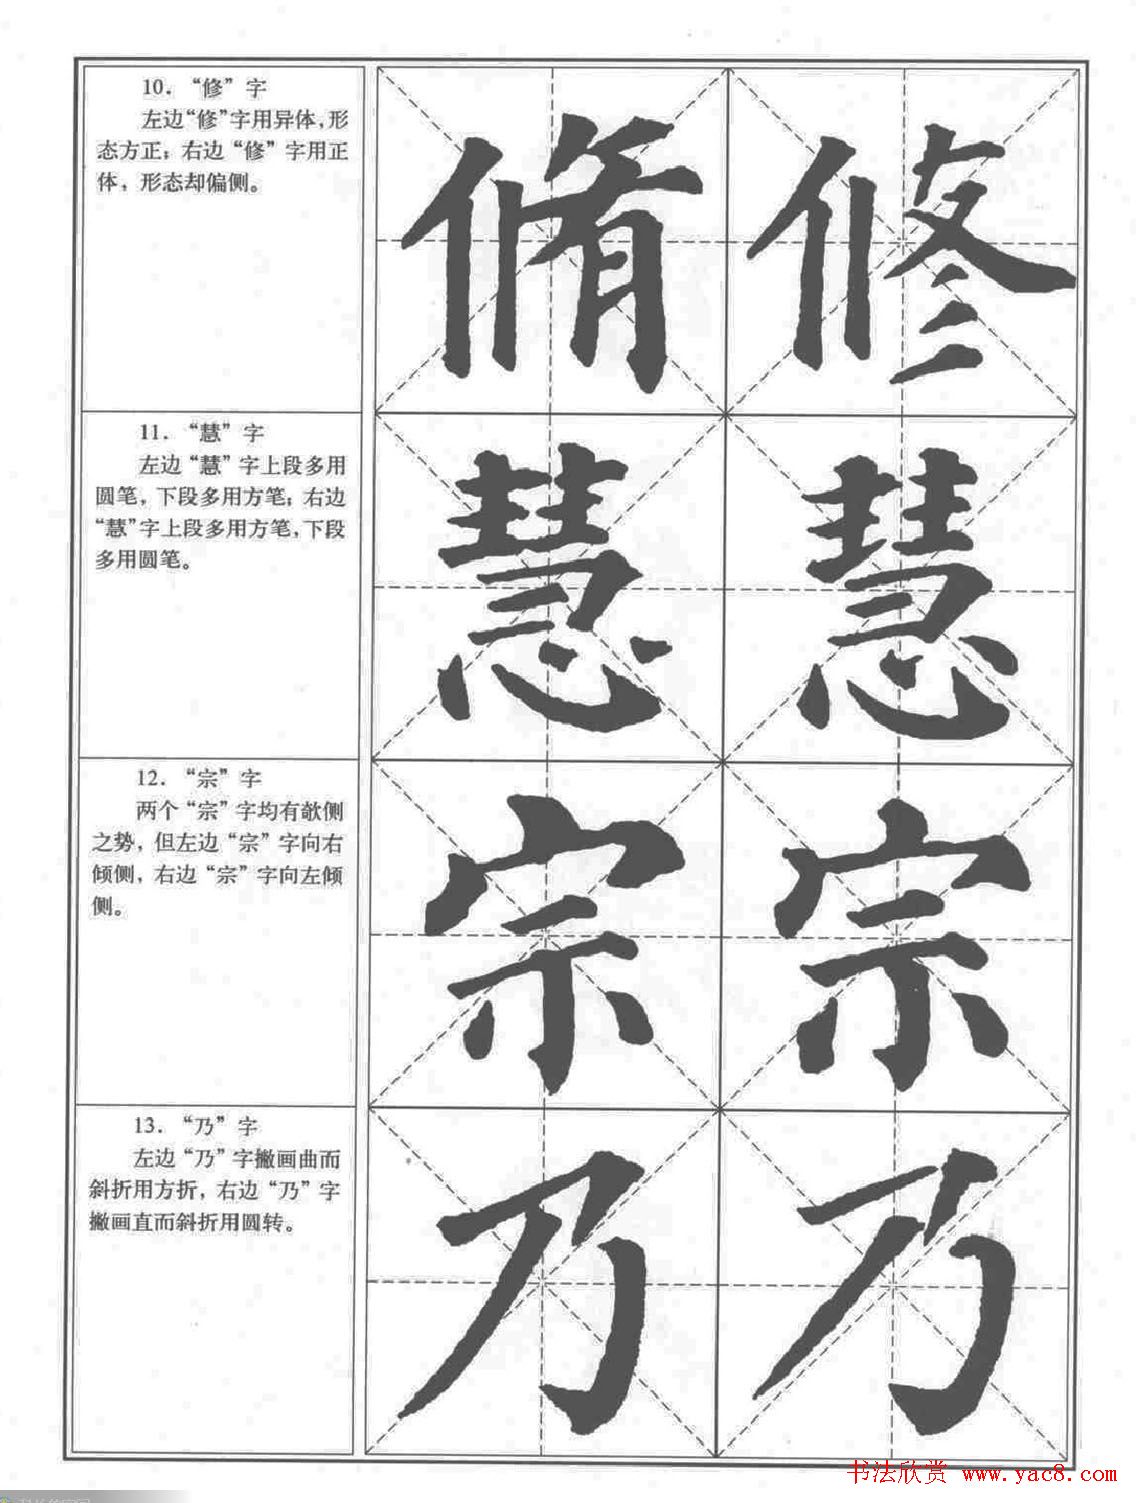 10. “修”字
左边“修”字用异体，形
态方正；右边“修”字用正
体，形态却偏侧。
脩 修
11. “慧”字
左边“慧”字上段多用
圆笔，下段多用方笔；右边
“慧”字上段多用方笔，下段
多用圆笔。
慧 慧
12. “宗”字
两个“宗”字均有欹侧
之势，但左边“宗”字向右
倾侧，右边“宗”字向左倾
侧。
宗 宗
13. “乃”字
左边“乃”字撇画曲而
斜折用方折，右边“乃”字
撇画直而斜折用圆转。
乃 乃
书法欣赏 www.yac8.com